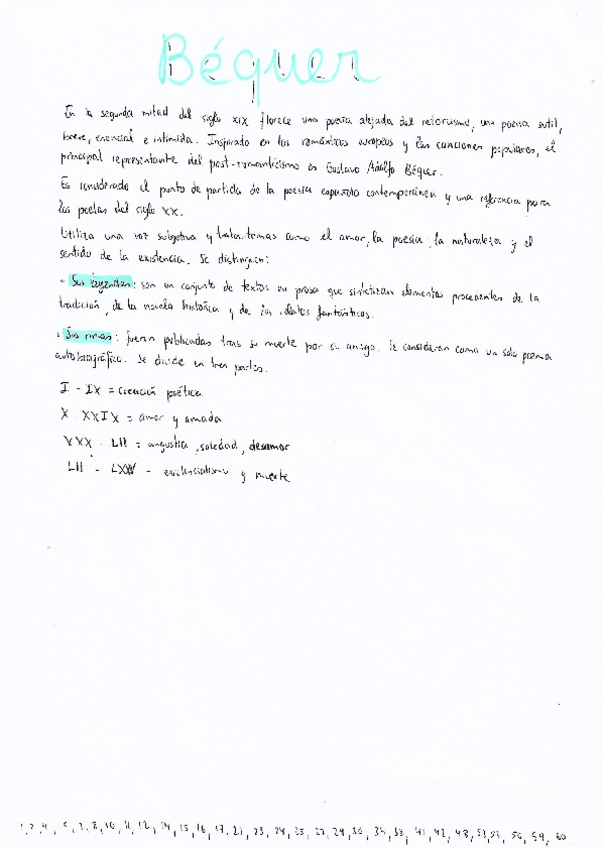 Béquer
En la segunda mitad del siglo XIX florece una poesía alejada del retoricismo, una poesía sutil,
breve, esencial e intimista. Inspirado en los románticos europeos y las canciones populares, el
principal representante del post-romanticismo es Gustavo Adolfo Béquer.
Es considerado el punto de partida de la poesía española contemporánea y una referencia para
los poetas del siglo XX.
Utiliza una voz subjetiva y trata temas como el amor, la poesía, la naturaleza y el
sentido de la existencia. Se distinguen:
- Sus leyendas: son un conjunto de textos en prosa que sintetizan elementos procedentes de la
tradición, de la novela histórica y de los relatos fantásticos.
- Sus rimas: fueron publicadas tras su muerte por su amigo. Se consideran como un solo poema
autobiográfico. Se divide en tres partes.
I - IX = creación poética
X - XXIX = amor y amada
XXX - LII = angustia, soledad, desamor
LII - existencialismo y muerte
10, 11, 12, 14, 15, 16, 17, 21, 23, 24, 25, 27, 29, 30, 41, 42, 48, 53, 56, 59, 60